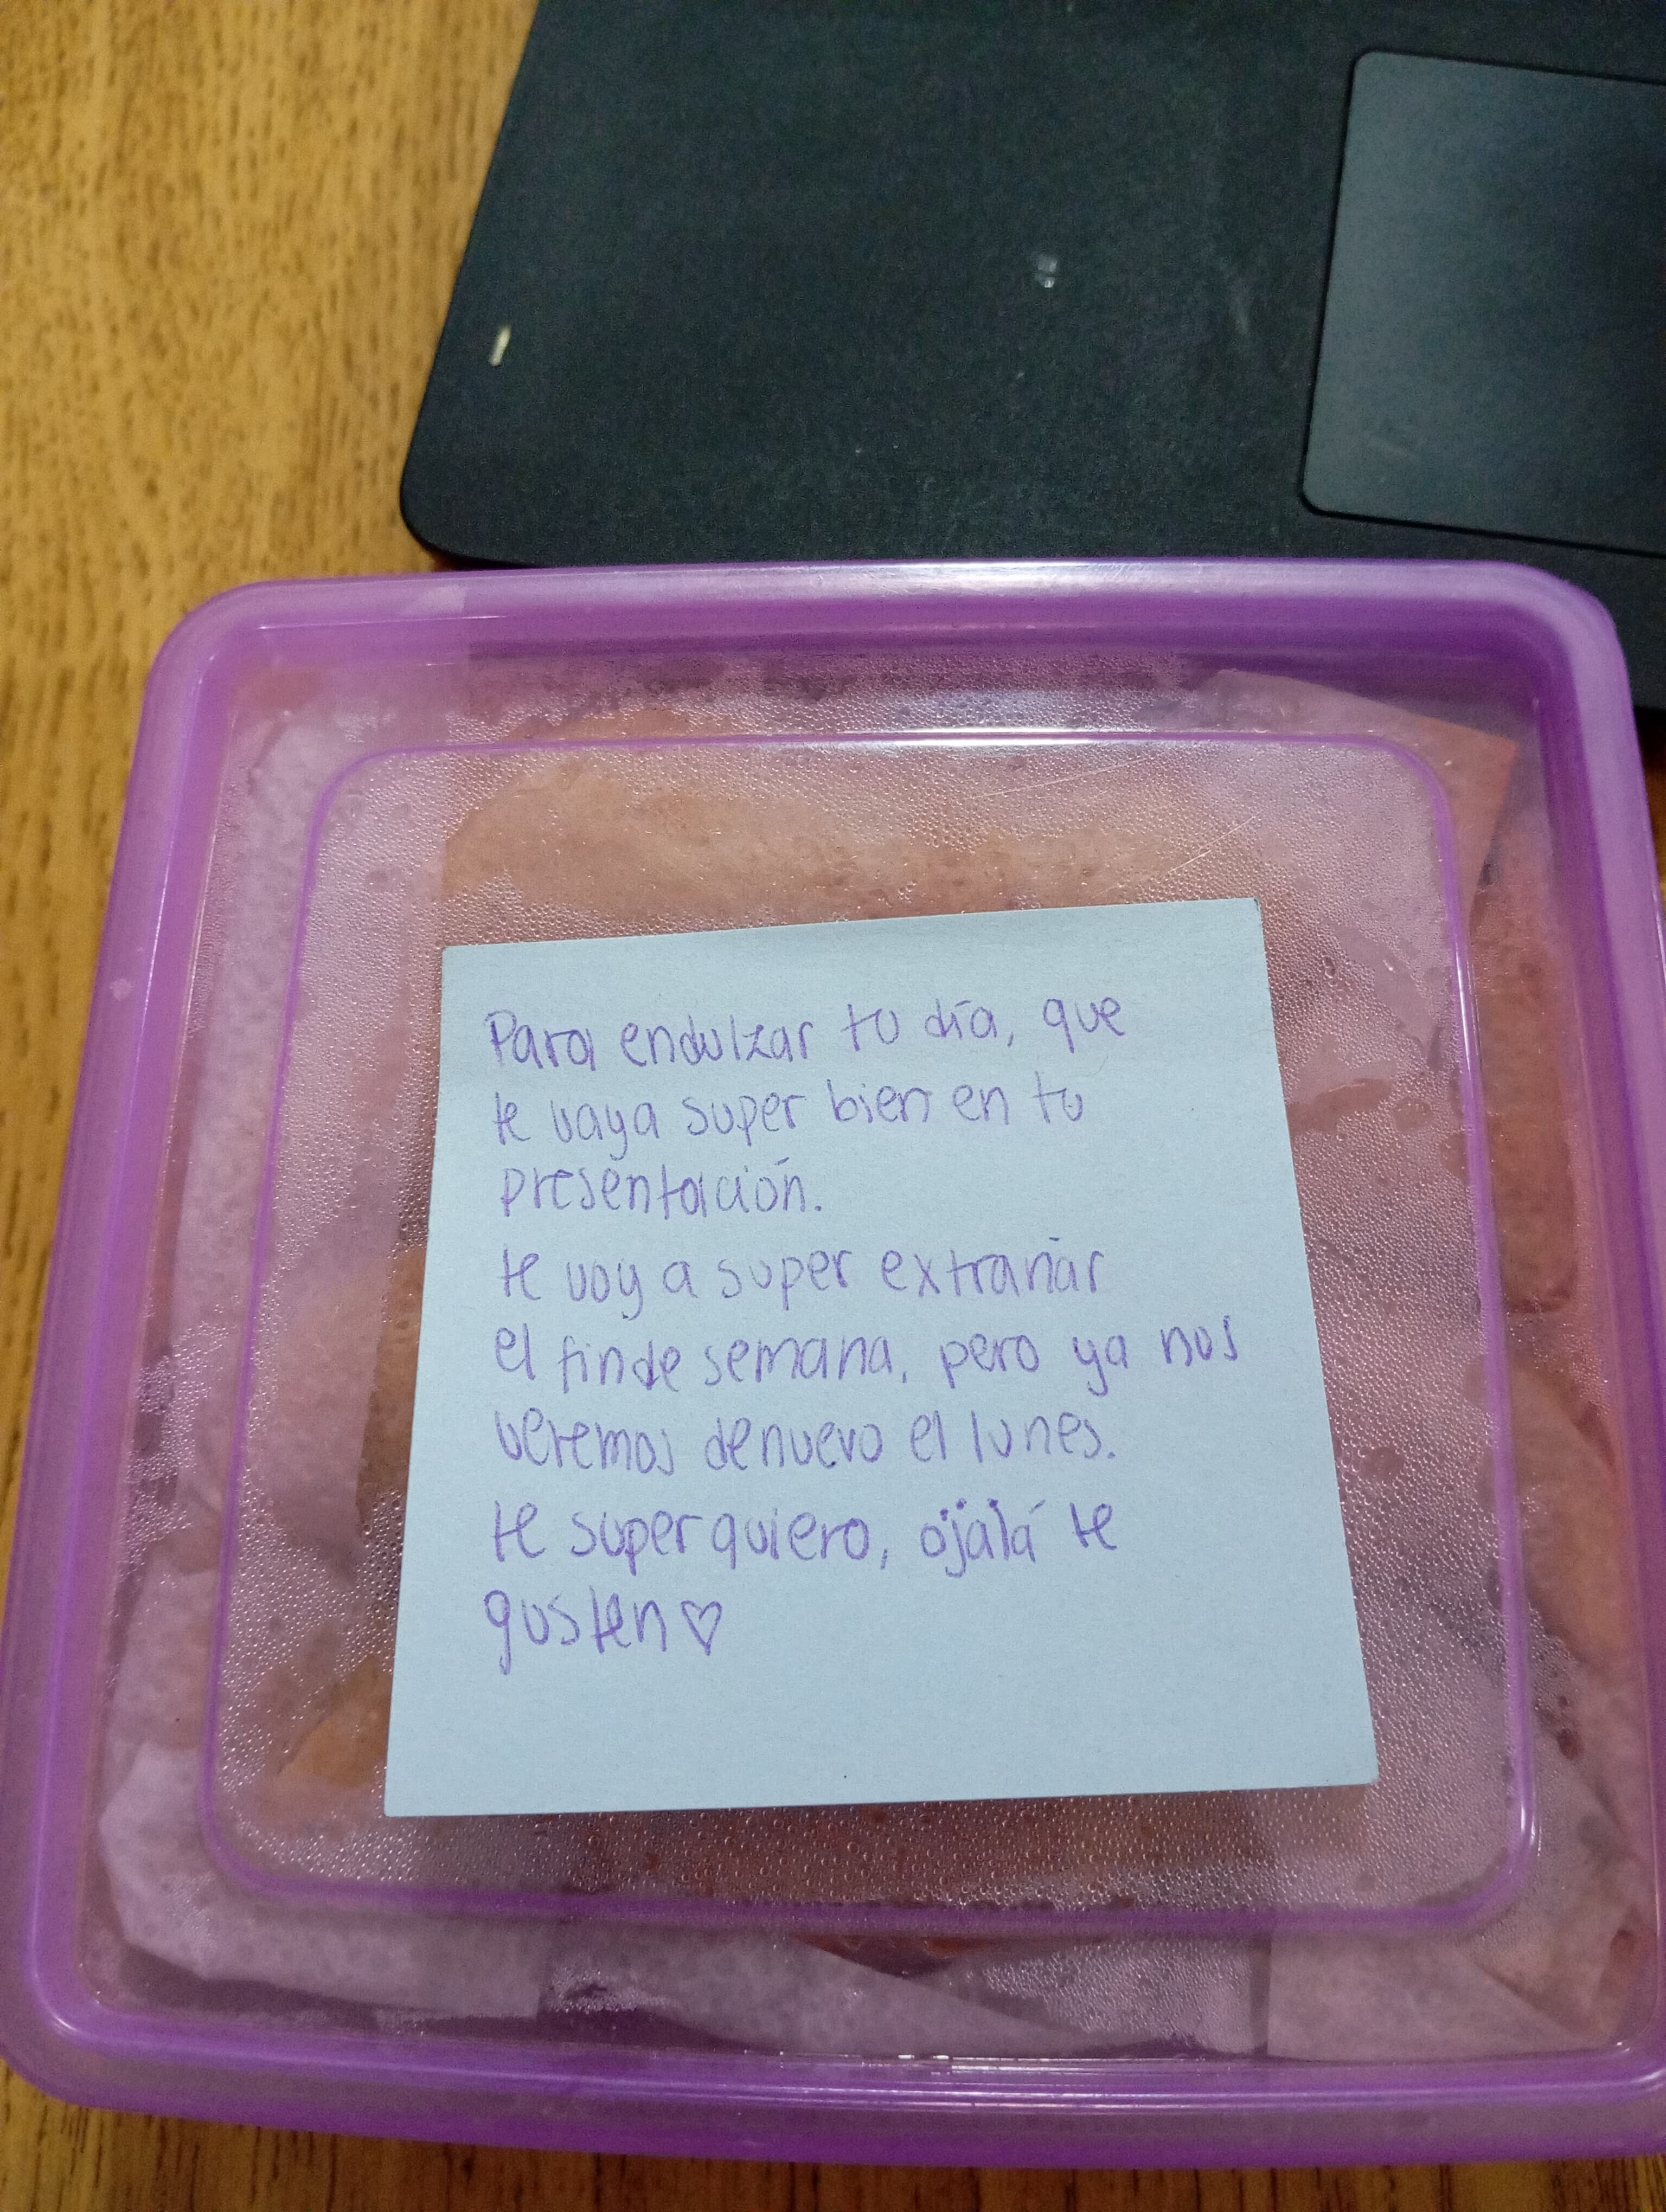 Para endulzar tu día, que
te vaya super bien en tu
presentación.
te voy a super extrañar
el finde semana, pero ya nos
veremos denuevo el lunes.
te super quiero, ojalá te
gusten ♡